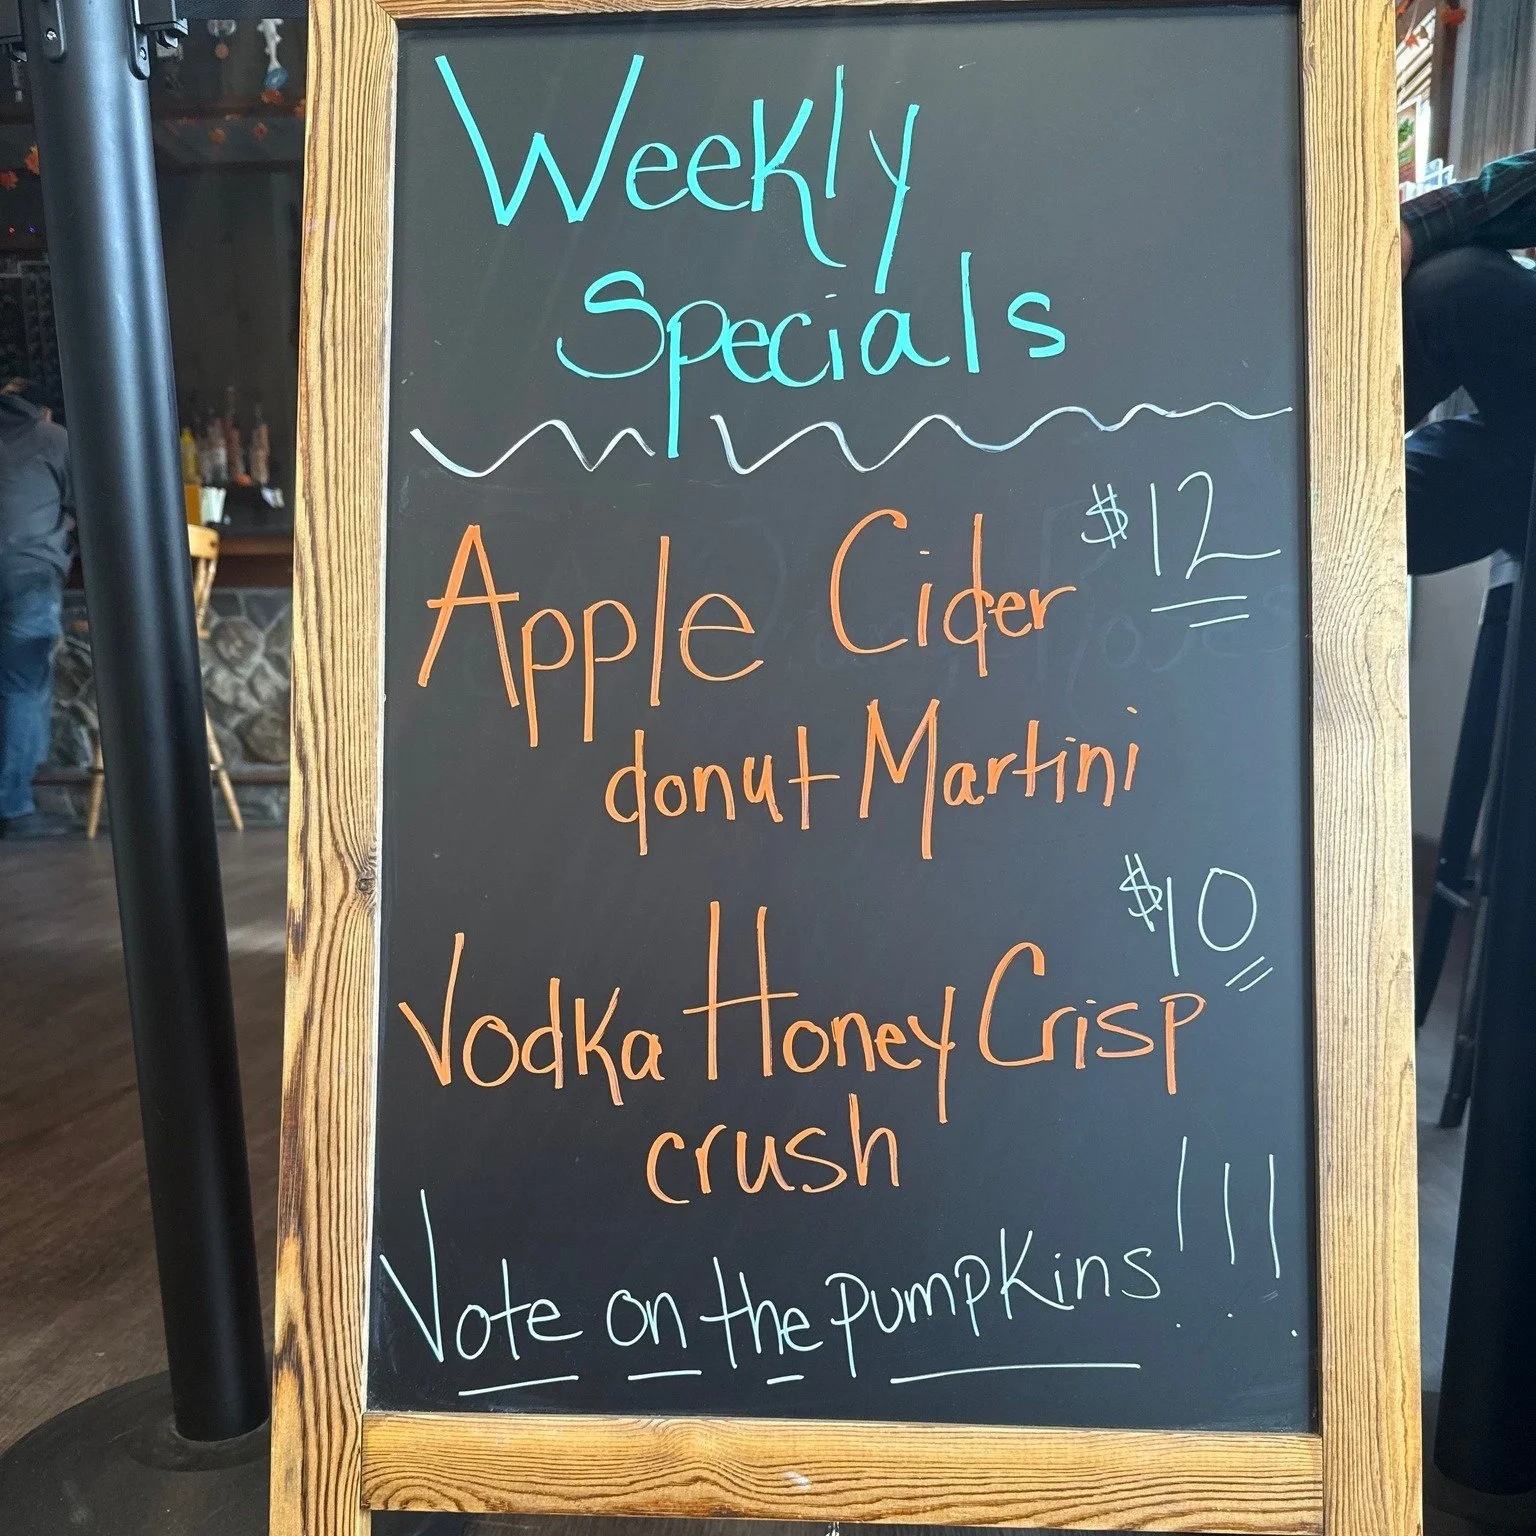 Weekly
Specials
$12
Apple Cider
donut Martini
$10
Vodka Honey Crisp
crush
Vote on the pumpkins!!!